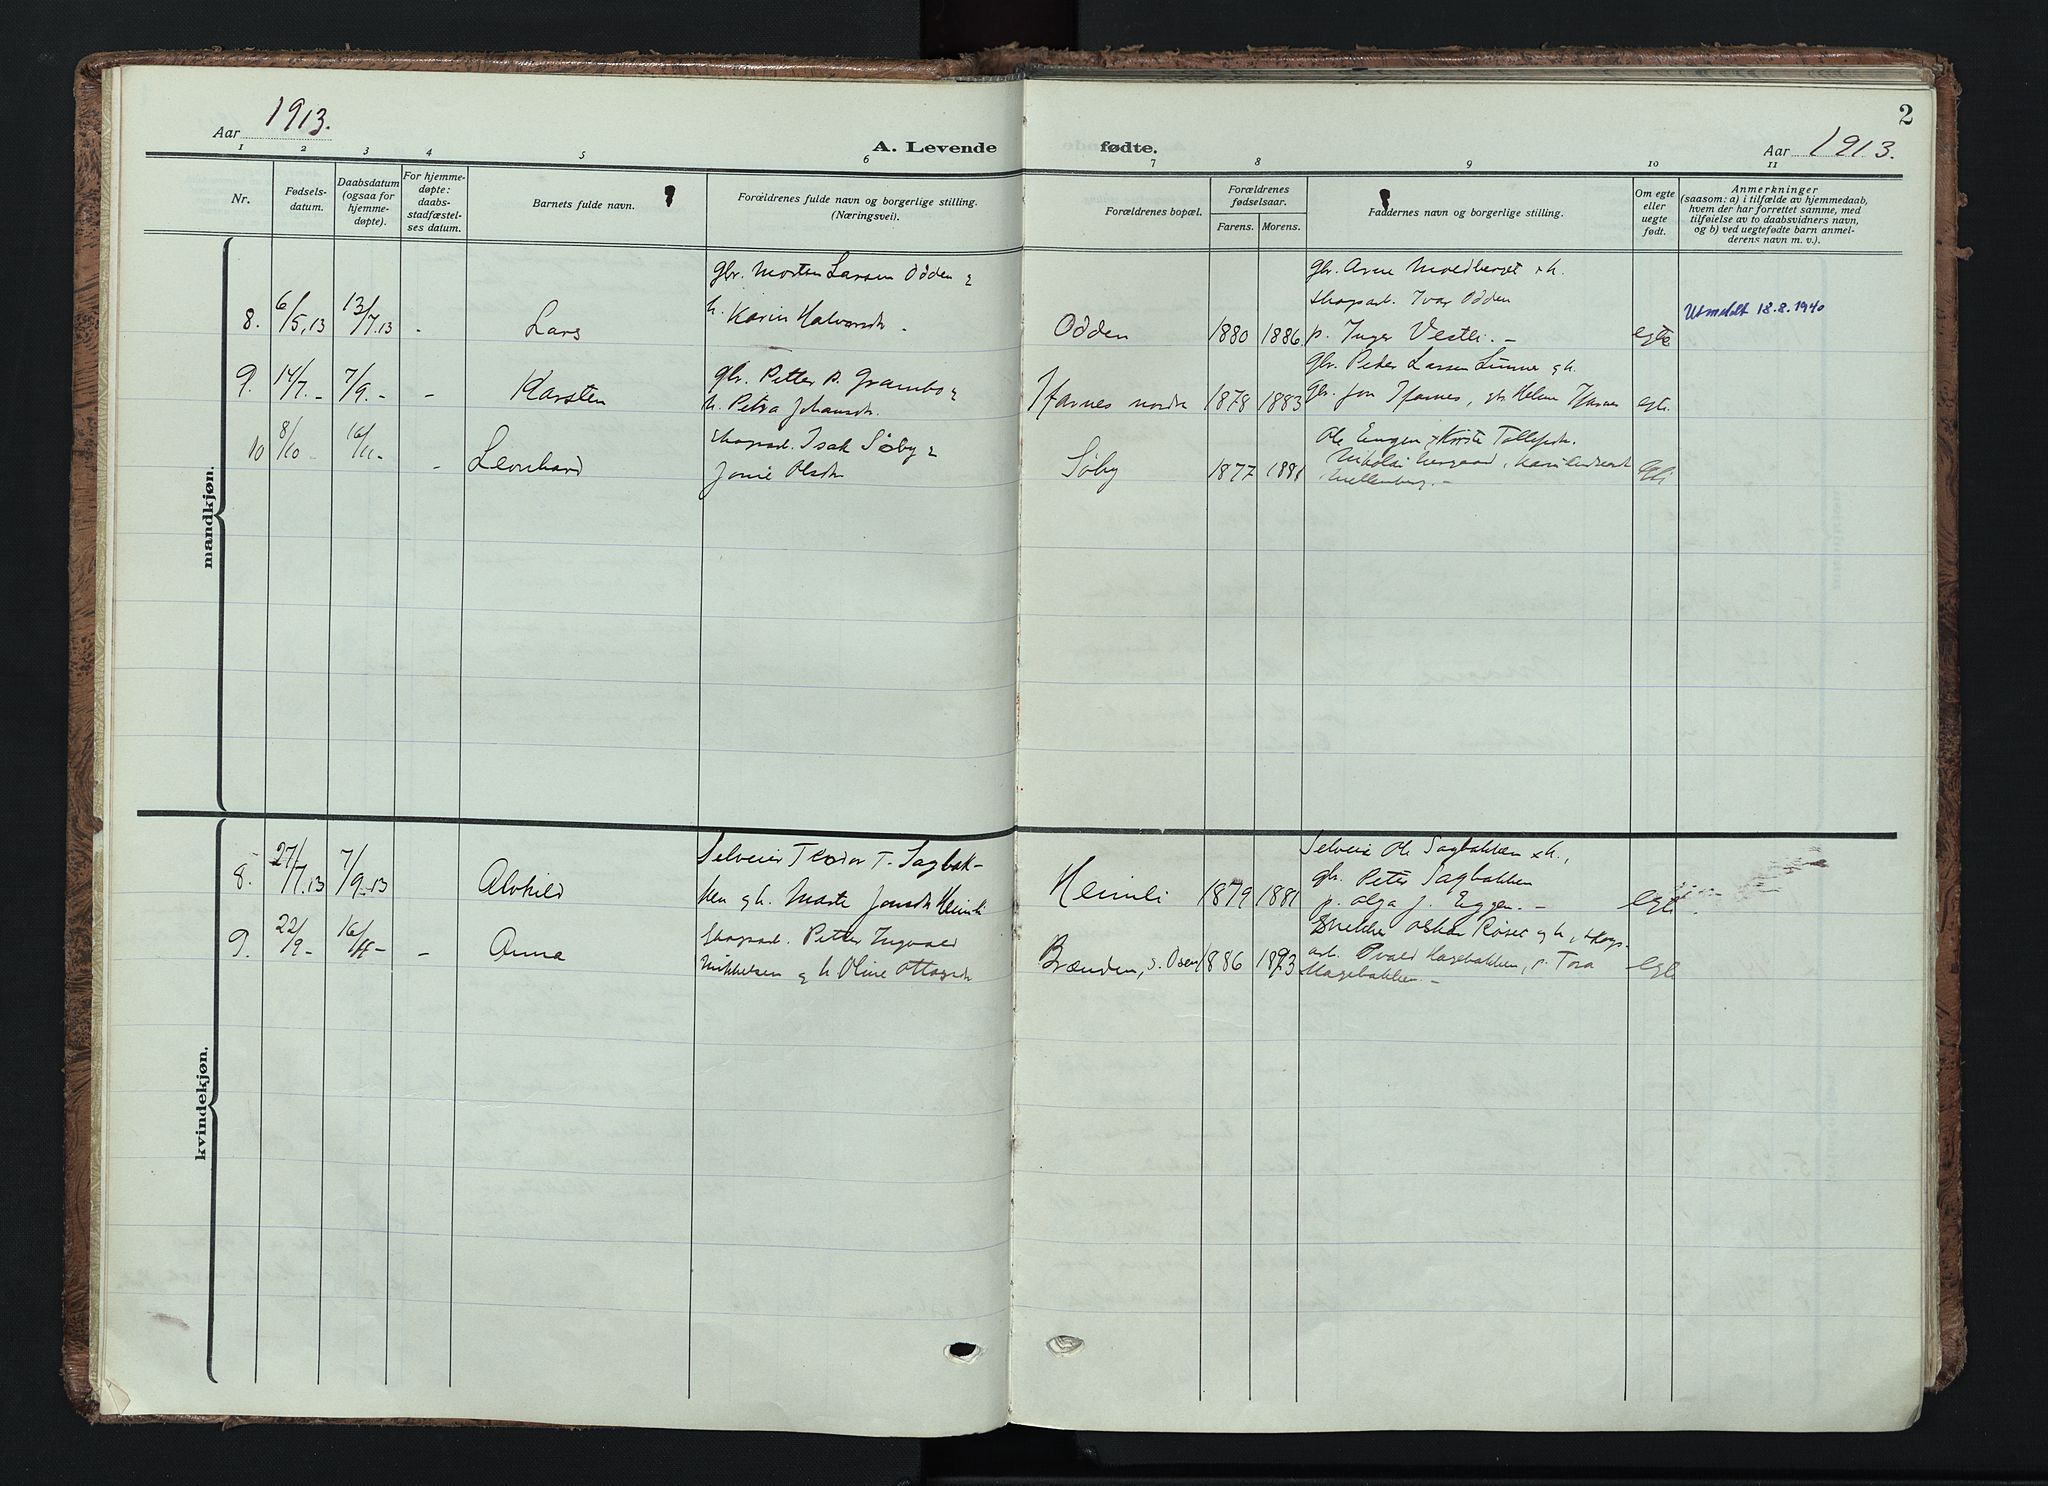 2
Aar 1913.
A. Levende fødte.
Aar 1913.
1 2 3 4 5 6 7 8 9 10 11
Nr.
Fødsels-
datum.
Daabsdatum
(ogsaa for
hjemme-
døpte).
For hjemme-
døpte:
daabs-
stadfæstel-
ses datum.
Barnets fulde navn.
Forældrenes fulde navn og borgerlige stilling.
(Næringsvei).
Forældrenes bopæl.
Forældrenes
fødselsaar.
Farens. Morens.
Faddernes navn og borgerlige stilling.
Om egte
eller
uegte
født.
Anmerkninger
(saasom: a) i tilfælde av hjemmedaab,
hvem der har forrettet samme, med
tilføielse av to daabsvidners navn,
og b) ved uegtefødte barn anmel-
derens navn m. v.).
mandkjøn.
gbr. Morten Larsen Odden &
h. Karin Halvorsdr.
8. 6/5.13 13/7.13 - Lars
Odden 1880 1886
gbr. Arne Moldberget & h.
skogsarb. Ivar Odden
p. Inger Vestli. -
egte
Utmeldt 18.8.1940
gbr. Petter P. Grambo &
h. Petra Johansdr.
9. 14/7.- 7/9.- - Karsten
nordre 1878 1883
gbr. Peder Larsen & h.
gbr. Jon, Helene
egte
skogsarb. Isak Søby &
Olsdr.
10 8/10 - 16/11- - Leonhard
Søby 1877 1881
Ole Engen
Nikolai
egte
kvindekjøn.
Selveier Teodor T. Sagbak-
ken og h. Marte Jonsdr. Heimli
8. 27/7.13 7/9.13 Alvhild
Heimli 1879 1881
Selveier Ole Sagbakken & h.,
gbr. Peter Sagbakken
p. Olga J. Eggen. -
egte
Skogsarb. Petter Ingvald
Mikkelsen og h. Oline Ottosdr.
9. 22/9- 16/11- - Anna
Brænden, s. Osen 1886 1893
Snekker Oskar og h., skogs-
arb. Hagebakken, p. Tora
Hagebakken. -
egte